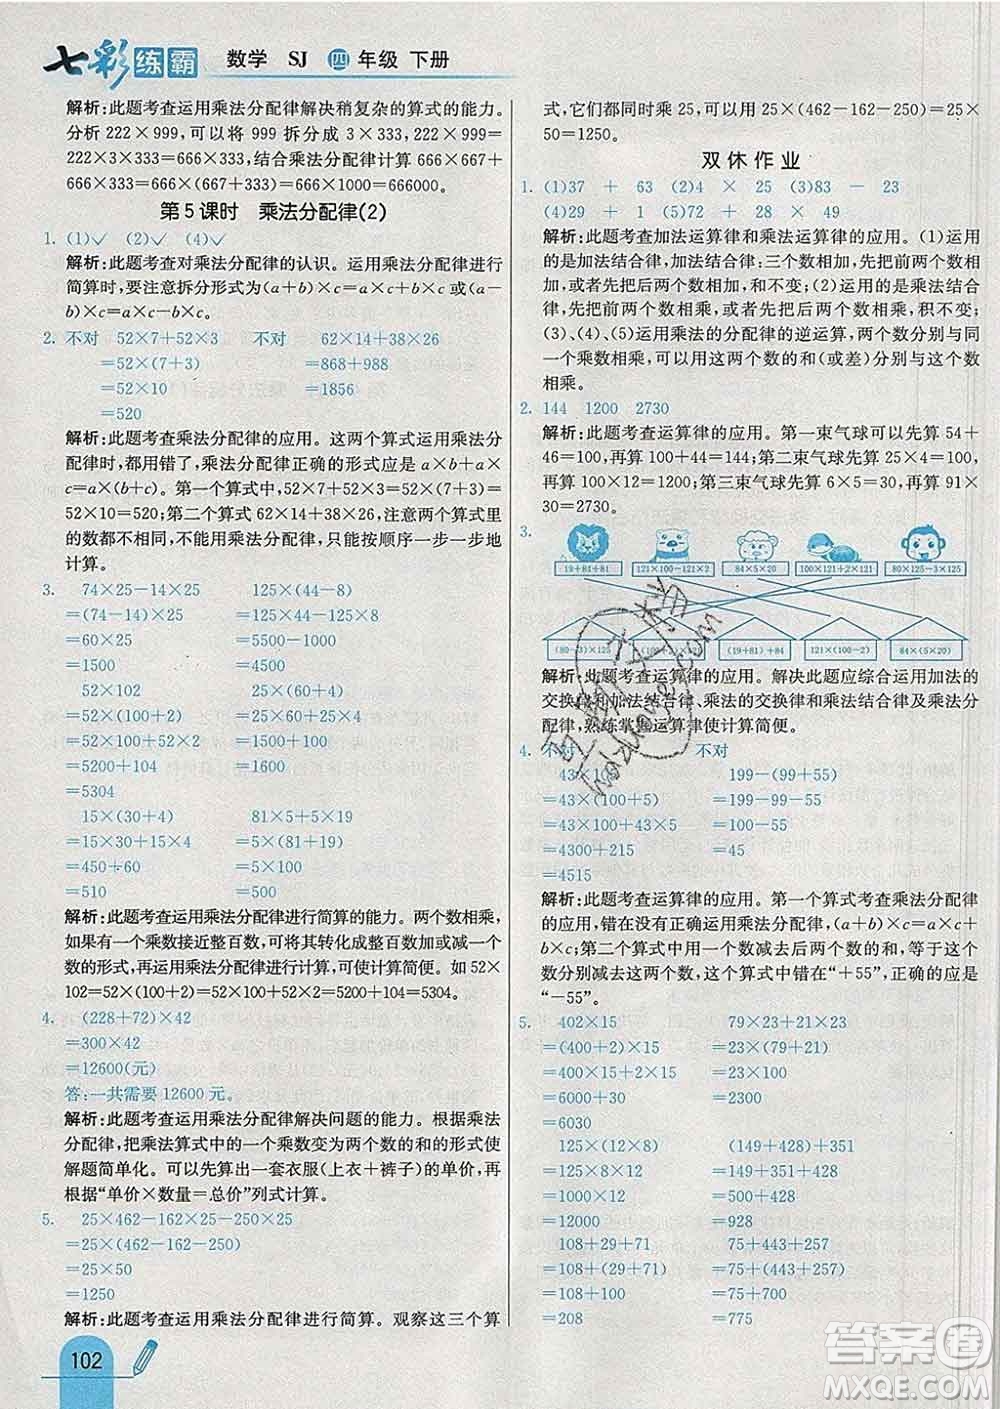 七彩练霸 数学 SJ 四年级 下册
解析:此题考查运用乘法分配律解决稍复杂的算式的能力。
分析 222×999,可以将 999 拆分成 3×333,222×999=
666×333=666×333,结合乘法分配律计算 666×667+
666×333=666×(667+333)=666×1000=666000。
第5课时 乘法分配律(2)
1. (1)✓ (2)✓ (4)✓
解析:此题考查对乘法分配律的认识。运用乘法分配律进行
简算时,要注意拆分形式为(a+b)×c=a×c+b×c或(a-
b)×c=a×c-b×c。
2. 不对 52×7+52×3 不对 62×14+38×26
=52×(7+3) =868+988
=52×10 =1856
=520
解析:此题考查乘法分配律的应用。这两个算式运用乘法分
配律时,都用错了,乘法分配律正确的形式应是 a×b+a×
c=a×(b+c)。第一个算式中,52×7+52×3=52×(7+3)=
52×10=520;第二个算式 62×14+38×26,注意两个算式里
的数都不相同,不能用乘法分配律,只能按顺序一步一步地
计算。
3. 74×25-14×25 125×(44-8)
=(74-14)×25 =125×44-125×8
=60×25 =5500-1000
=1500 =4500
52×102 25×(60+4)
=52×(100+2) =25×60+25×4
=52×100+52×2 =1500+100
=5200+104 =1600
=5304
15×(30+4) 81×5+5×19
=15×30+15×4 =5×(81+19)
=450+60 =5×100
=510 =500
解析:此题考查运用乘法分配律进行简算的能力。两个数相乘,
如果有一个乘数接近整百数,可将其转化成整百数加或减一个
数的形式,再运用乘法分配律进行计算,可使计算简便。如 52×
102=52×(100+2)=52×100+52×2=5200+104=5304。
4. (228+72)×42
=300×42
=12600(元)
答:一共需要 12600 元。
解析:此题考查运用乘法分配律解决问题的能力。根据乘法
分配律,把乘法算式中的一个乘数变为两个数的和的形式使
解题简单化。可以先算出一套衣服(上衣+裤子)的单价,再
根据“单价×数量=总价”列式计算。
5. 25×462-162×25-250×25
=25×(462-162-250)
=25×50
=1250
解析:此题考查运用乘法分配律进行简算。观察这三个算
102
式,它们都同时乘 25,可以用 25×(462-162-250)=25×
50=1250。
双休作业
1. (1)37 + 63 (2)4 × 25 (3)83 - 23
(4)29 + 1 (5)72 + 28 × 49
解析:此题考查加法运算律和乘法运算律的应用。(1)运用
的是加法结合律,加法结合律:三个数相加,先把前两个数相
加,或者先把后两个数相加,和不变;(2)运用的是乘法结合
律,先把前两个数相乘,或者先把后两个数相乘,积不变;
(3)、(4)、(5)运用乘法的分配律的逆运算,两个数分别与同
一个乘数相乘,可以用这两个数的和(或差)分别与这个数
相乘。
2. 144 1200 2730
解析:此题考查运算律的应用。第一束气球可以先算 54+
46=100,再算 100+44=144;第二束气球先算 25×4=100,
再算 12×100=1200;第三束气球先算 6×5=30,再算 91×
30=2730。
3.
19+81+81 121×100-121×2 84×5×20 100×121+2×121 80×125-3×125
(80-3)×125 (100+2)×121 (19+81)+81 121×(100-2) 84×(5×20)
解析:此题考查运算律的应用。解决此题应综合运用加法的
交换律和加法结合律、乘法的交换律和乘法结合律及乘法分
配律,熟练掌握运算律使计算简便。
4. 不对 不对
43×105 199-(99+55)
=43×(100+5) =199-99-55
=43×100+43×5 =100-55
=4300+215 =45
=4515
解析:此题考查运算律的应用。第一个算式考查乘法分配律
的应用,错在没有正确运用乘法分配律,(a+b)×c=a×c+
b×c;第二个算式中用一个数减去后两个数的和,等于这个
数分别减去这两个数,这个算式中错在“+55”,正确的应是
“-55”。
5. 402×15 79×23+21×23
=(400+2)×15 =23×(79+21)
=400×15+2×15 =23×100
=6000+30 =2300
=6030
125×(12×8) (149+428)+351
=125×8×12 =149+351+428
=1000×12 =500+428
=12000 =928
108+29+71 75+443+257
=108+(29+71) =75+(443+257)
=108+100 =75+700
=208 =775
答案圈
MXQE.COM